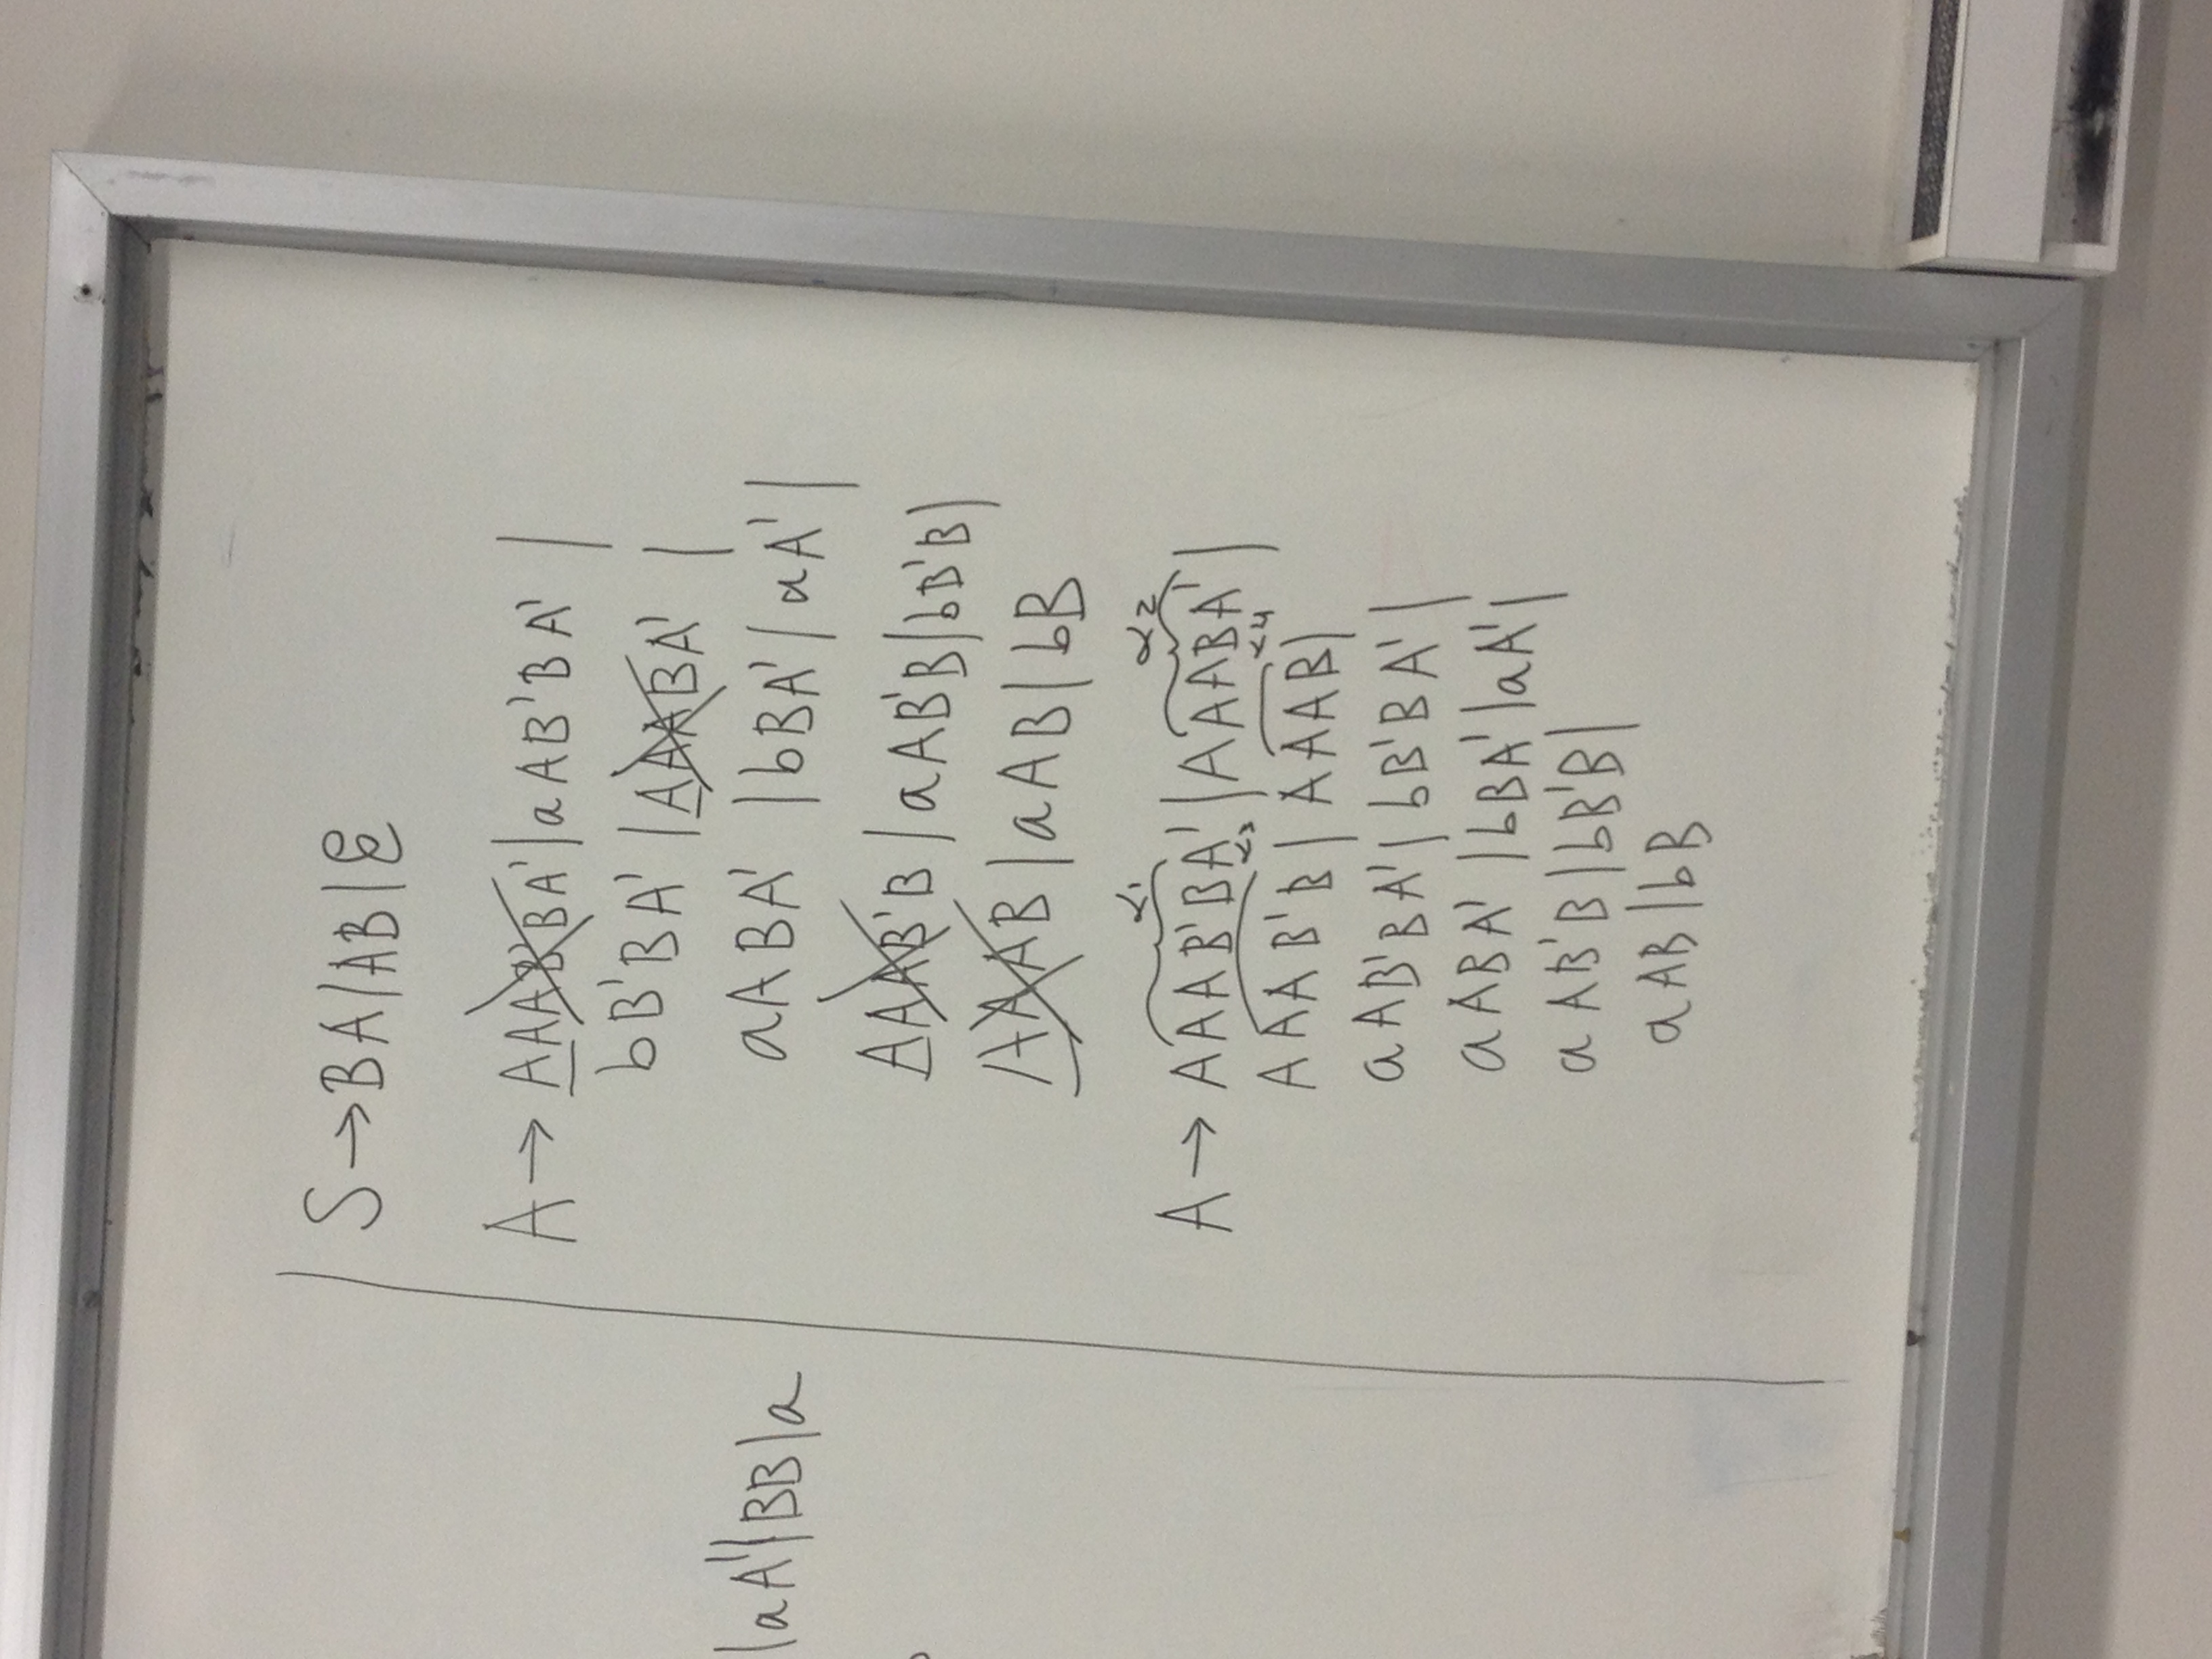 S → BA | AB | ε
A → AAAB'BA' | aAB'BA' |
bB'BA' | AAABA' |
aABA' | bBA' | aA' |
| aA' | BB | a
AAAB'B | aAB'B | bB'B |
AAAB | aAB | bB
α1 α2
A → AAAB'BA' | AAABA' |
α3 α4
AAAB'B | AAAB |
aAB'BA' | bB'BA' |
aABA' | bBA' | aA' |
aAB'B | bB'B |
aAB | bB